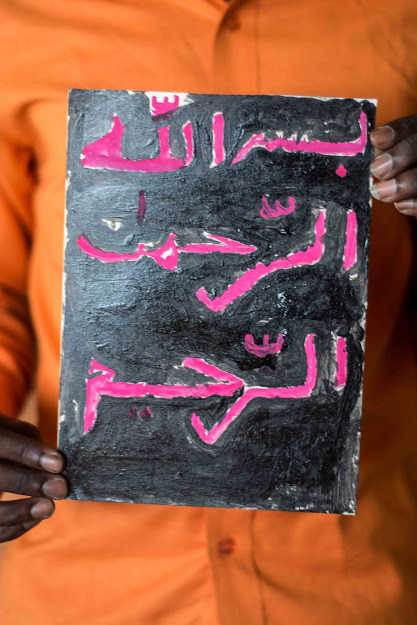 بسم الله
الرّحمن
الرّحيم